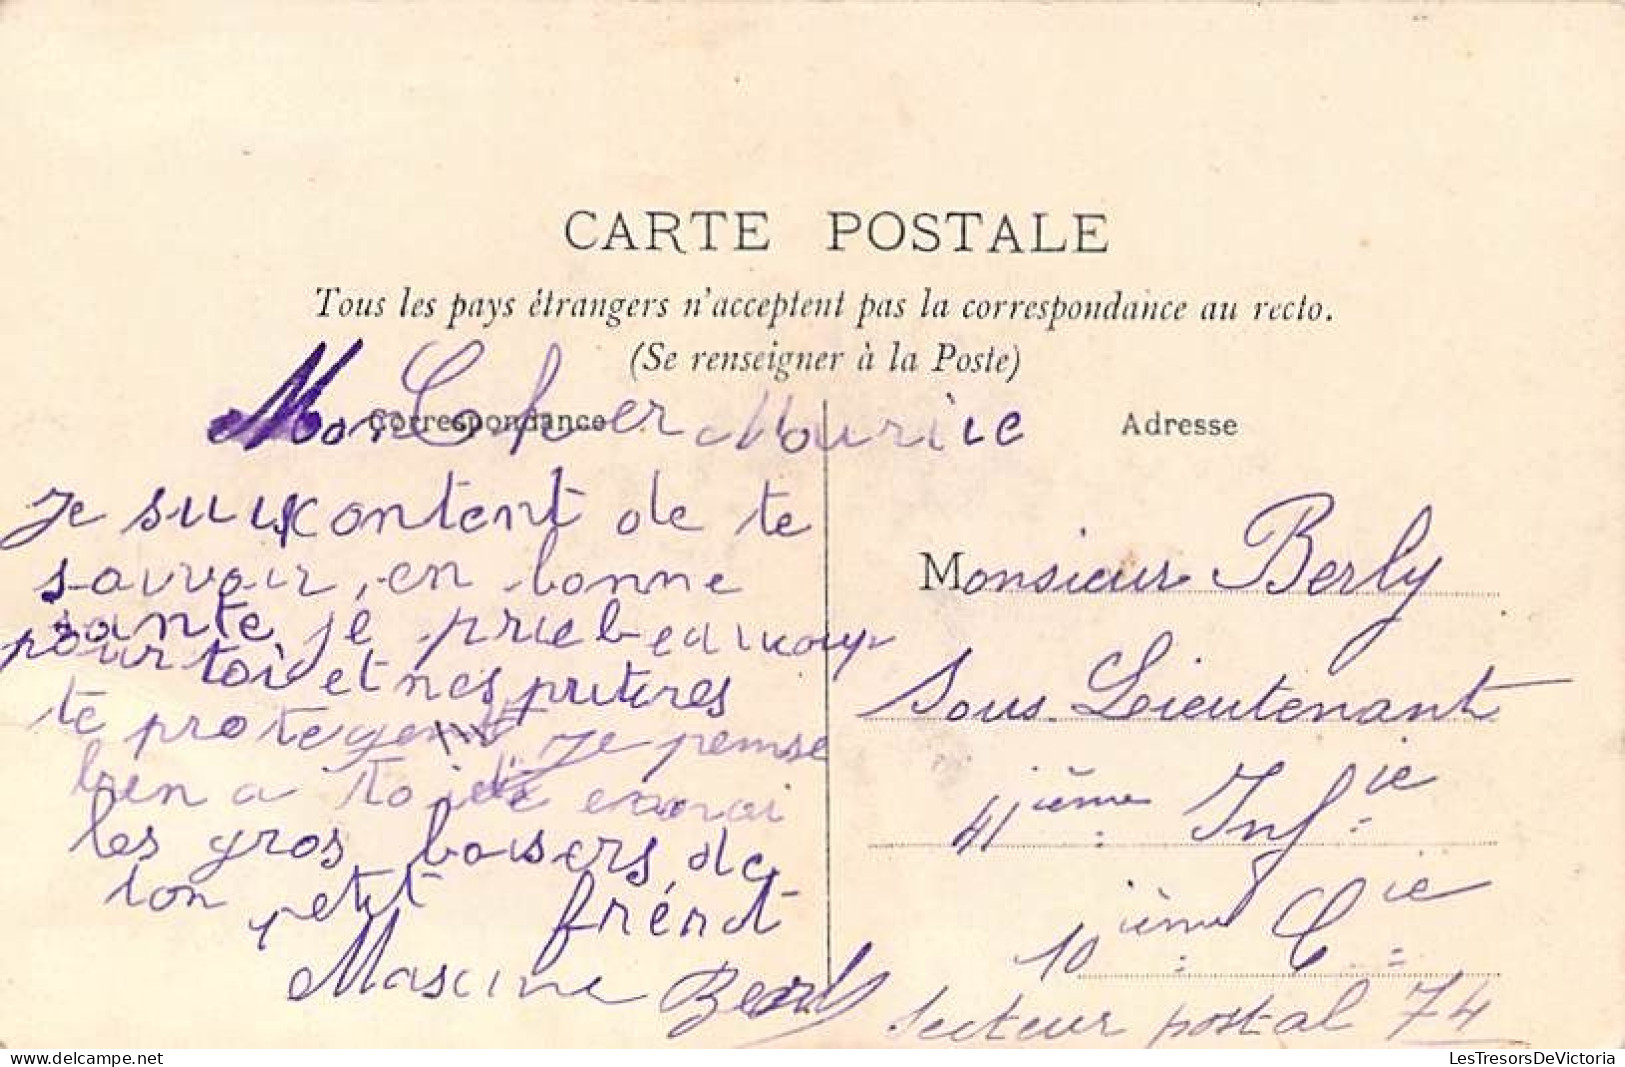 CARTE POSTALE
Tous les pays étrangers n'acceptent pas la correspondance au recto.
(Se renseigner à la Poste)
Correspondance
Mon Cher Maurice
Je suis content de te
savvoir, en bonne
sante je prie beaucoup
pour toi et nes prieres
te protegent Je pemse
bien a toi
les gros baisers de
ton petit
Maxime Berly
Adresse
Monsieur Berly
Sous-Lieutenant
41ième Infie
10ième Cie
Secteur postal 74
LesTresorsDeVictoria